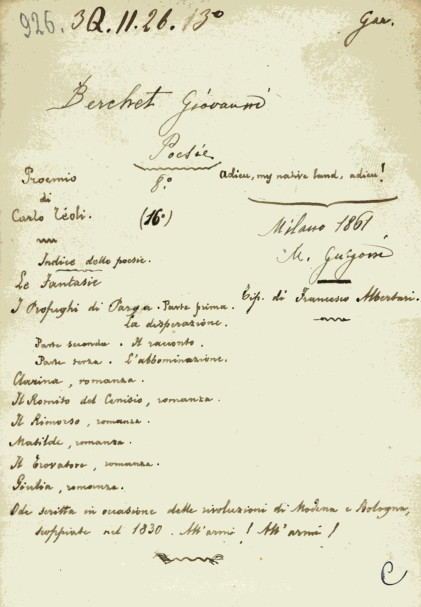 926. 3Q.11.26.13° Gar.
Berchet Giovanni
Poesie
Proemio
di
Carlo Téoli.
8.°
(16°)
Adieu, my native land, adieu!
Milano 1861
M. Guigoni
Tip. di Francesco Albertari.
Indice delle poesie.
Le Fantasie
I Profughi di Parga. Parte prima.
La disperazione.
Parte seconda. Il racconto.
Parte terza. L'abbominazione.
Clarina, romanza.
Il Romito del Cenisio, romanza.
Il Rimorso, romanza.
Matilde, romanza.
Il Trovatore, romanza.
Giulia, romanza.
Ode scritta in occasione delle rivoluzioni di Modena e Bologna,
scoppiate nel 1830. All'armi! All'armi!
C